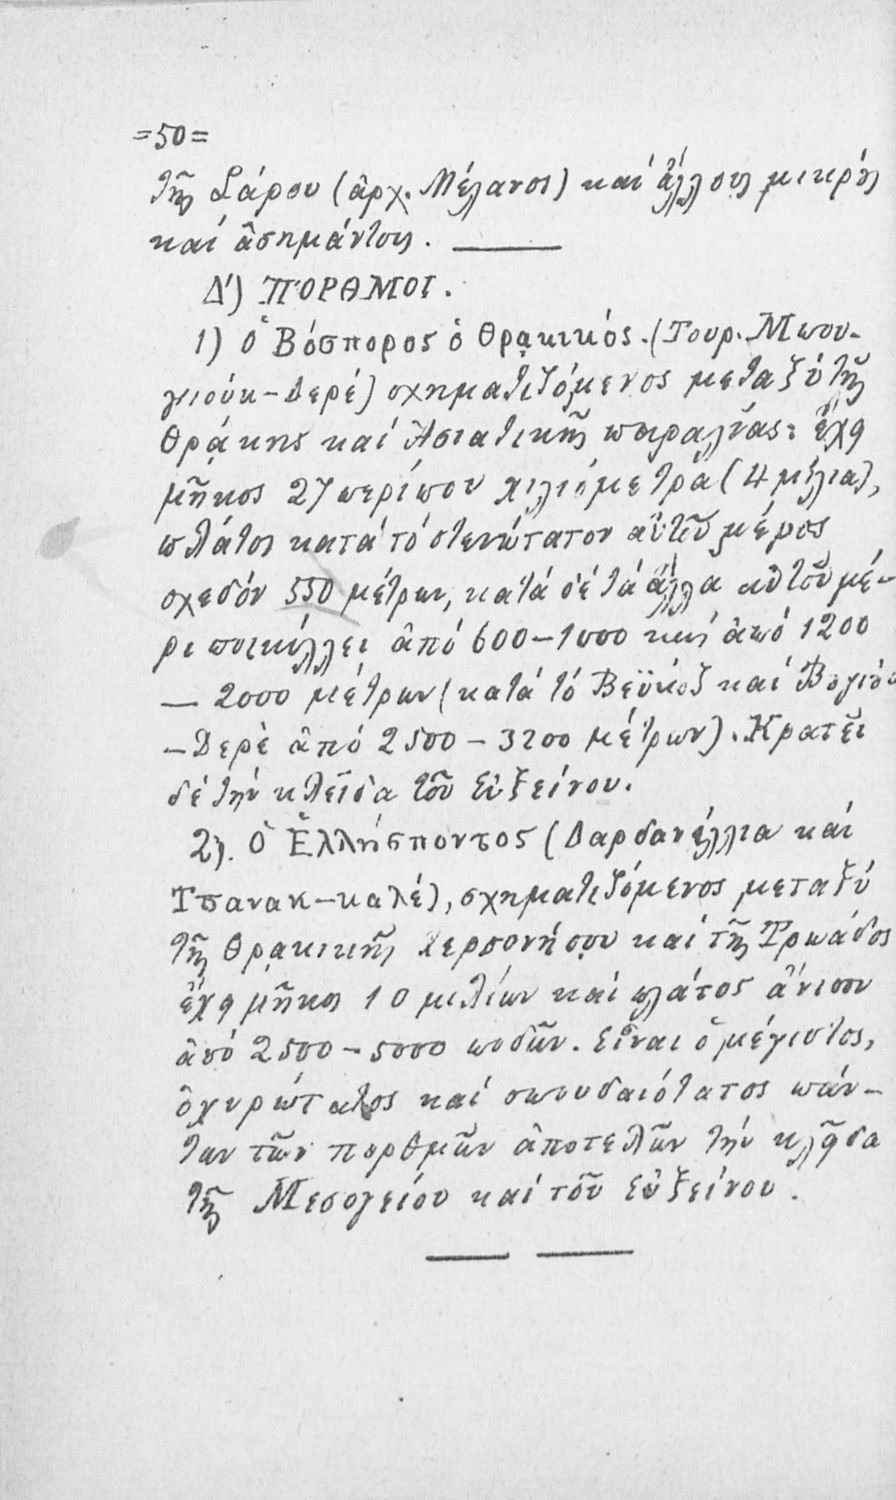 =50=
τῆς Σάρου (ἀρχ. Μέλανος) καί ἄλλους μικρούς
καί ἀσημάντους. ———
Δ') ΠΟΡΘΜΟΙ.
1) Ὁ Βόσπορος ὁ Θρακικός. (Τουρ. Μπου-
γιούκ-Δερέ) σχηματιζόμενος μεταξύ τῆς
Θράκης καί Ἀσιατικῆς παραλίας· ἔχει
μῆκος 27 περίπου χιλιόμετρα (4 μίλια),
πλάτος κατά τό στενώτατον αὐτοῦ μέρος
σχεδόν 550 μέτρων, κατά δέ τά ἄλλα αὐτοῦ μέ-
ρη ποικίλλει ἀπό 600-1000 καί ἀπό 1200
— 2000 μέτρων (κατά τό Βεϋκόζ καί Βογιούκ
-Δερέ ἀπό 2500 - 3200 μέτρων). Κρατεῖ
δέ τήν κλεῖδα τοῦ Εὐξείνου.
2). Ὁ Ἑλλήσποντος (Δαρδανέλλια καί
Τσανακ-καλέ), σχηματιζόμενος μεταξύ
τῆς Θρακικῆς Χερσονήσου καί τῆς Τρωάδος
ἔχει μῆκος 10 μιλίων καί πλάτος ἄνισον
ἀπό 2500 - 5000 ποδῶν. Εἶναι ὁ μέγιστος,
ὀχυρώτατος καί σπουδαιότατος πάν-
των τῶν πορθμῶν ἀποτελῶν τήν κλεῖδα
τῆς Μεσογείου καί τοῦ Εὐξείνου.